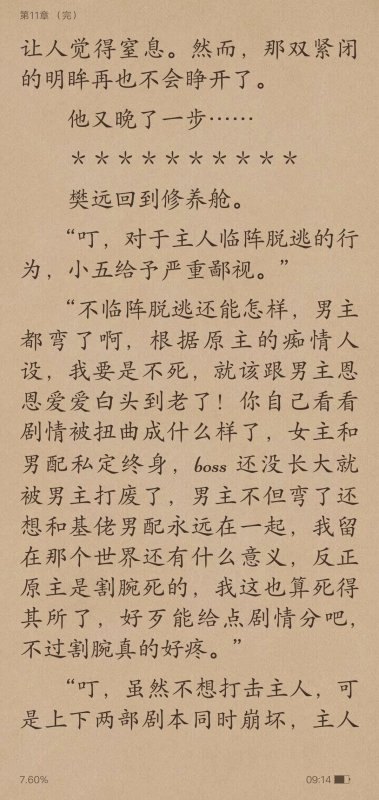 第11章 （完）
让人觉得窒息。然而，那双紧闭
的明眸再也不会睁开了。
他又晚了一步……
＊＊＊＊＊＊＊＊＊＊
樊远回到修养舱。
“叮，对于主人临阵脱逃的行
为，小五给予严重鄙视。”
“不临阵脱逃还能怎样，男主
都弯了啊，根据原主的痴情人
设，我要是不死，就该跟男主恩
恩爱爱白头到老了！你自己看看
剧情被扭曲成什么样了，女主和
男配私定终身，boss 还没长大就
被男主打废了，男主不但弯了还
想和基佬男配永远在一起，我留
在那个世界还有什么意义，反正
原主是割腕死的，我这也算死得
其所了，好歹能给点剧情分吧，
不过割腕真的好疼。”
“叮，虽然不想打击主人，可
是上下两部剧本同时崩坏，主人
7.60%
09:14